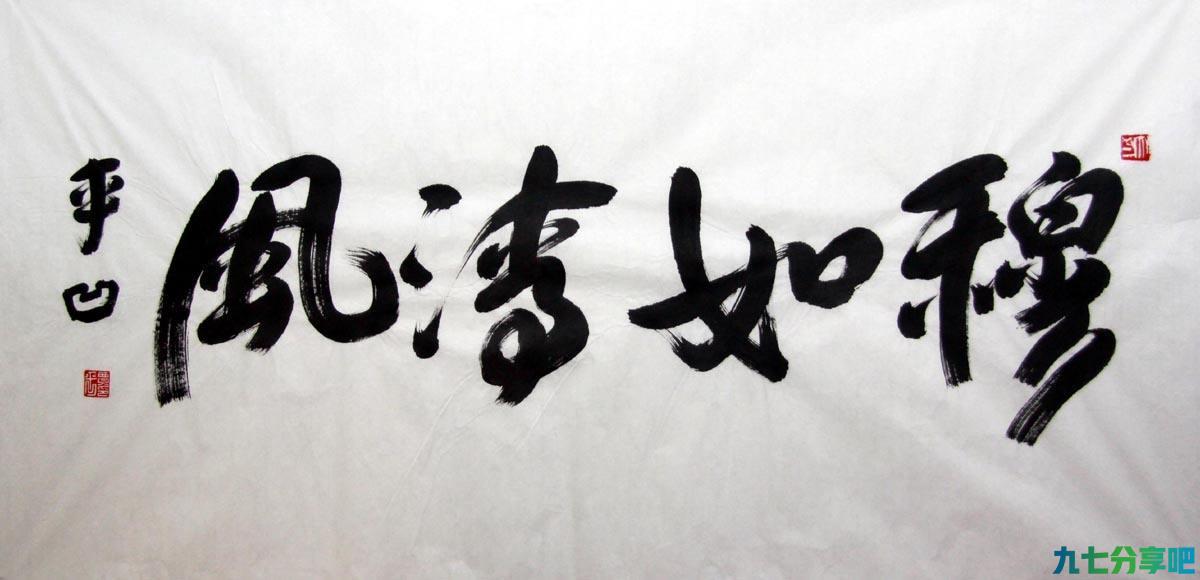 穆如清風
平凹
九七分享吧